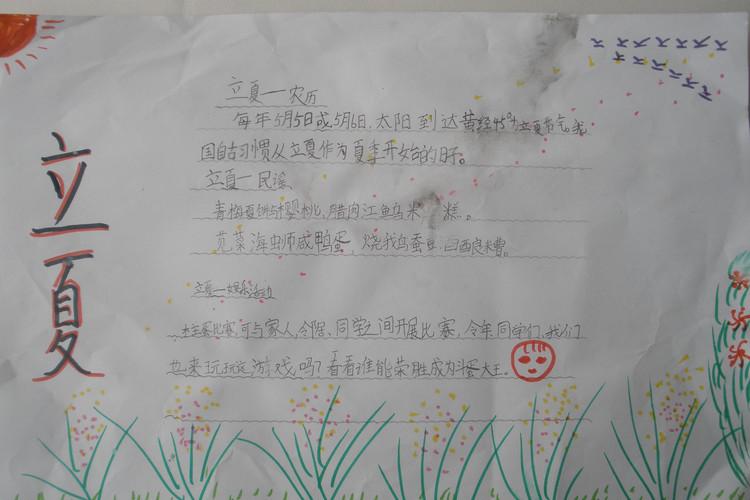 立夏
立夏一农历
每年5月5日或5月6日,太阳到达黄经45°为立夏节气。我
国自古习惯从立夏作为夏季开始的日子。
立夏一民谣
青梅夏饼与樱桃,腊肉江鱼乌米 糕。
苋菜海虫师咸鸭蛋,烧我乌蚕豆
立夏一娱乐活动
比赛,可与家人,邻居、同学之间开展比赛,今年同学们,我们
也来玩玩这游戏吗?看看谁能荣胜成为斗蛋大王。